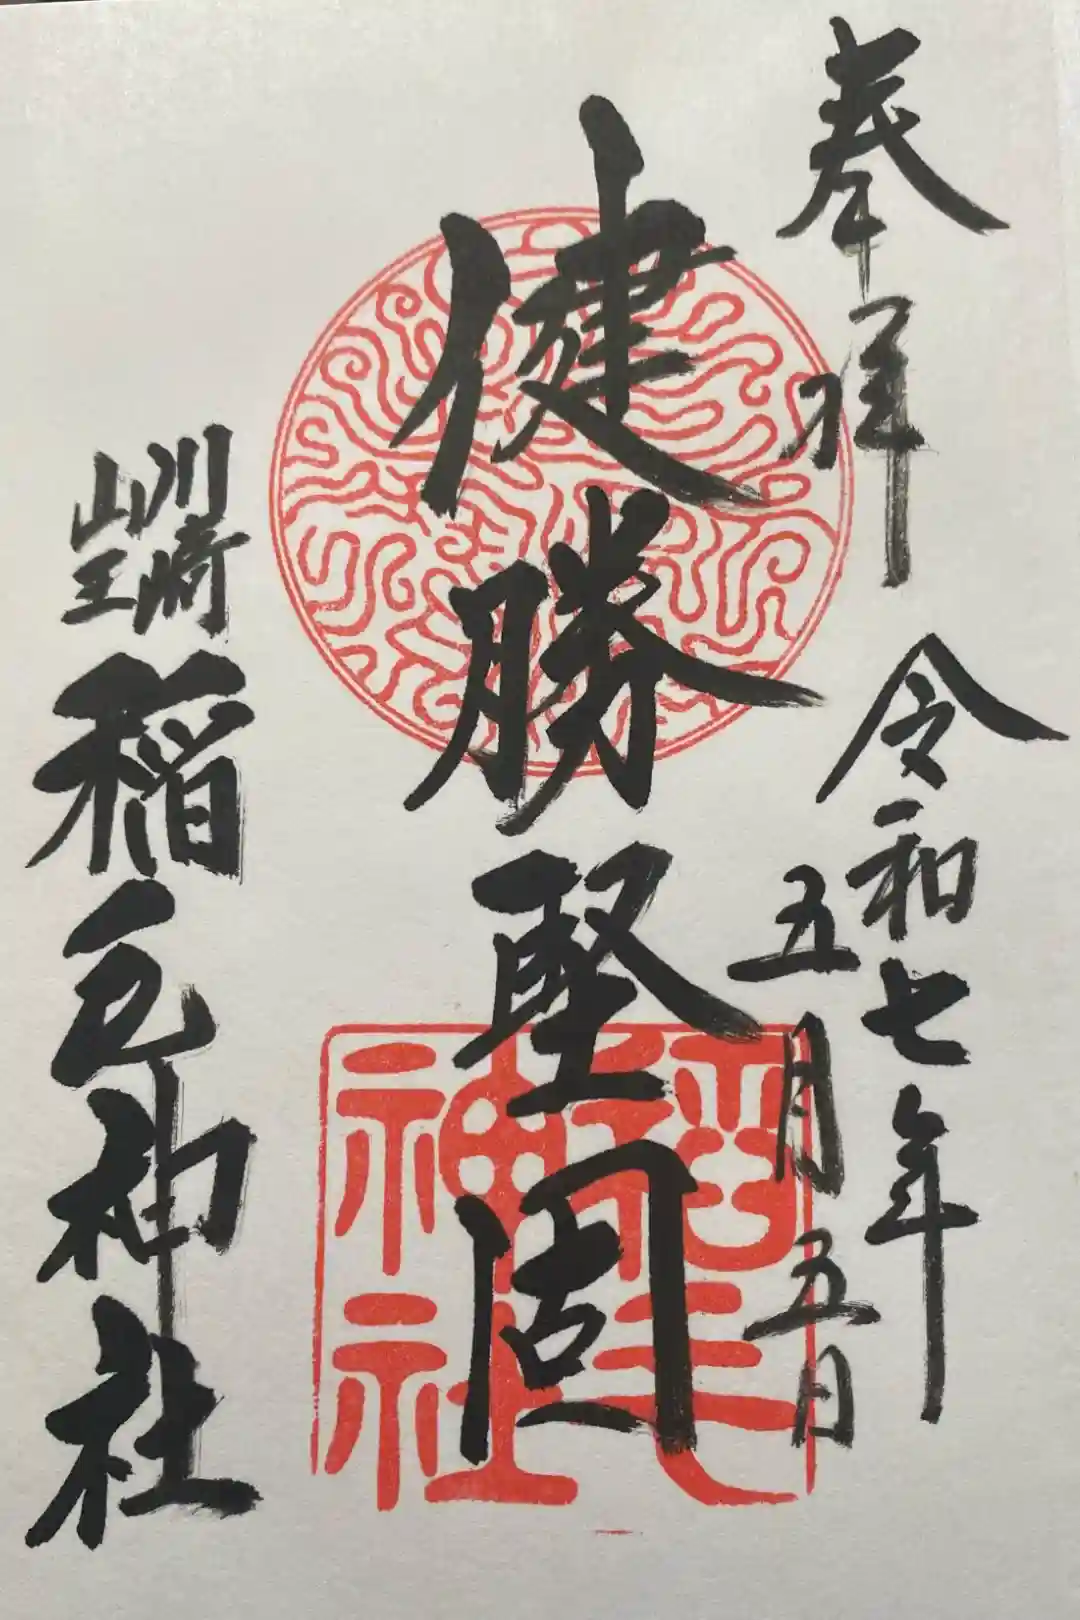 奉拝
令和七年
五月五日
健勝堅固
川崎
山王
稲毛神社
稲毛
神社